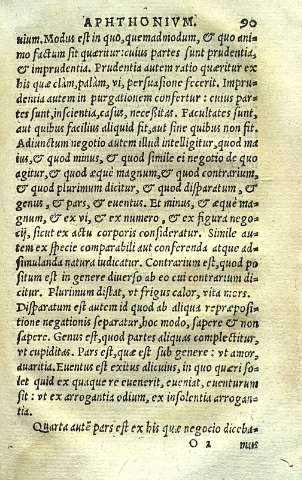 APHTHONIVM. 90
uium. Modus est in quo, quemadmodum, & quo ani-
mo factum sit quæritur: cuius partes sunt prudentia,
& imprudentia. Prudentia autem ratio quæritur ex
his quæ clàm, pàlam, vi, persuasione fecerit. Impru-
dentia autem in purgationem confertur: cuius par-
tes sunt, inscientia, casus, necessitas. Facultates sunt,
aut quibus facilius aliquid fit, aut sine quibus non fit.
Adiunctum negotio autem illud intelligitur, quod ma
ius, & quod minus, & quod simile ei negotio de quo
agitur, & quod æquè magnum, & quod contrarium,
& quod plurimum dicitur, & quod disparatum, &
genus, & pars, & euentus. Et minus, & æquè ma-
gnum, & ex vi, & ex numero, & ex figura nego-
cij, sicut ex actu corporis consideratur. Simile au-
tem ex specie comparabili aut conferenda atque ad-
simulanda natura iudicatur. Contrarium est, quod po
situm est in genere diuerso ab eo cui contrarium di-
citur. Plurimum distat, vt frigus calor, vita mors.
Disparatum est autem id quod ab aliqua repræposi-
tione negationis separatur, hoc modo, sapere & non
sapere. Genus est, quod partes aliquas complectitur,
vt cupiditas. Pars est, quæ est sub genere: vt amor,
auaritia. Euentus est exitus alicuius, in quo quæri so-
let quid ex quaque re euenerit, eueniat, euenturum
sit: vt ex arrogantia odium, ex insolentia arrogan-
tia.
Quarta autē pars est ex his quæ negocio diceba-
O 2 mus